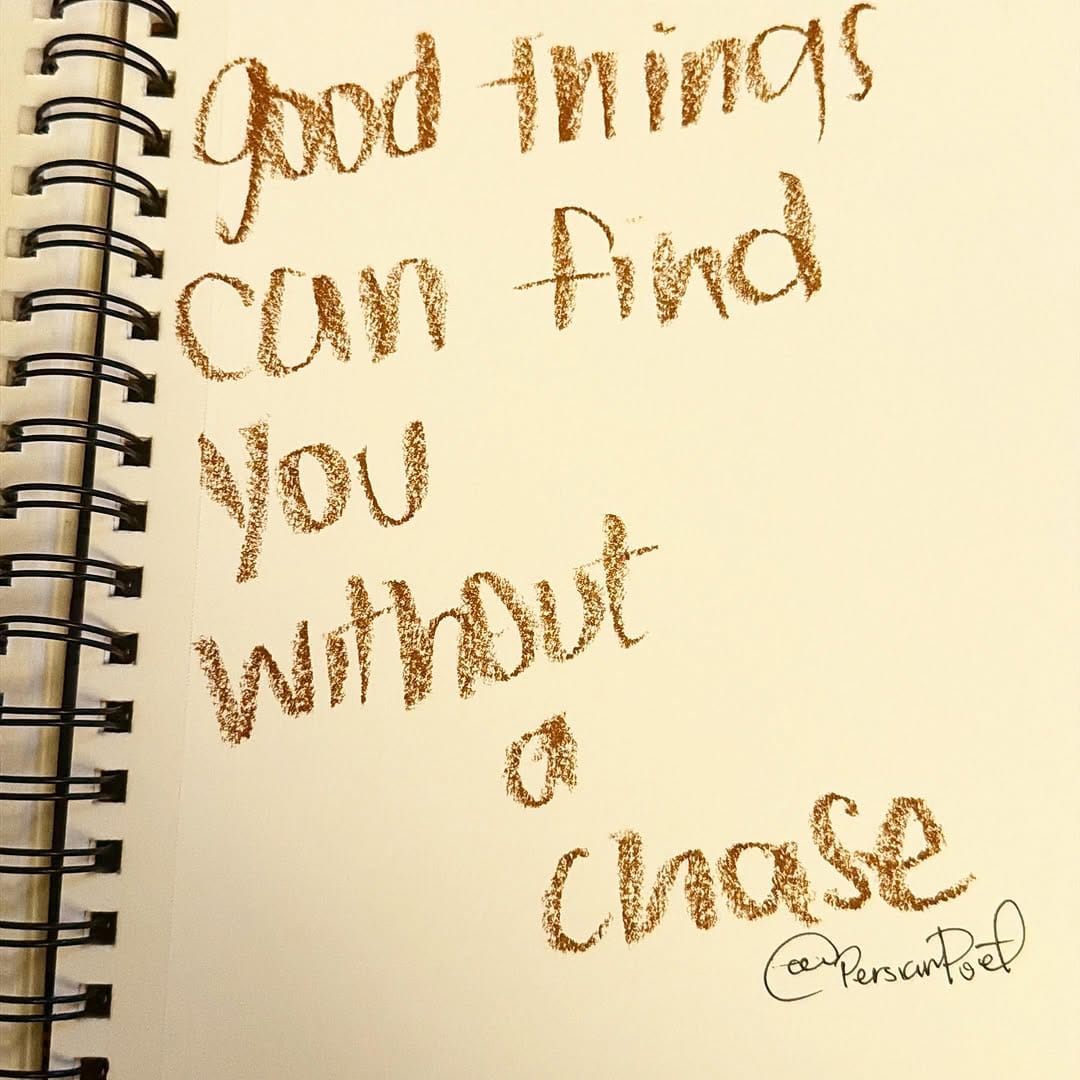 good things
can find
you
without
a
chase
@PersianPoet